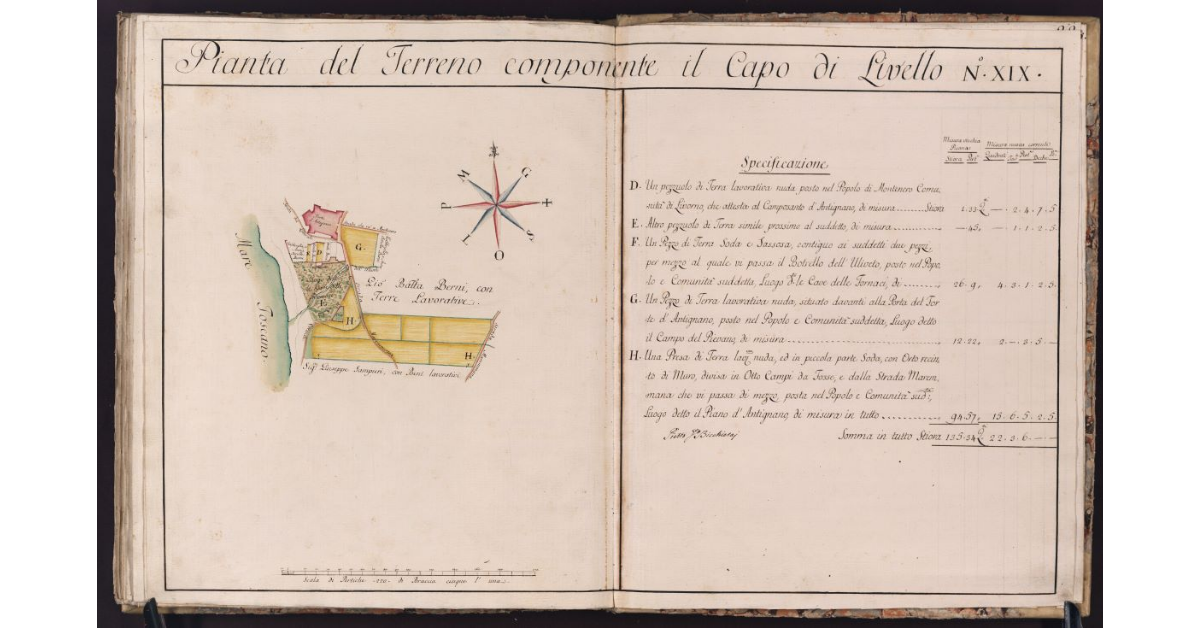 Pianta del Terreno componente il Capo di Livello N.º XIX.
Mare Toscano
G.
E
D
F
H
H.
Gio Batta Berni, con
Terre Lavorative.
Sig.r Giuseppe Sanguri, con Beni lavorativi
M
G
P
L
S
O
Scala di Pertiche 120. di Braccia cinque l'una.
Specificazione
Stiora
Quadrati
D. Un pezzuolo di Terra lavorativa nuda, posto nel Popolo di Montenero Comu,
nità di Livorno, che attesta al Camposanto d'Antignano, di misura Stiora
2. 4. 7. 5
E. Altro pezzuolo di Terra simile, prossimo al suddetto, di misura
— 45, — . 1 . 1 . 2 . 5
F. Un Pezzo di Terra Soda e Sassosa, contiguo ai suddetti due pezzi,
per mezzo al quale vi passa il Botrello dell'Uliveto, posto nel Popo,
lo e Comunità suddetta, Luogo d.º le Cave delle Fornaci, di
26. 9, 4. 3. 1. 2. 5
G. Un Pezzo di Terra lavorativa nuda, situato davanti alla Porta del For,
te d'Antignano, posto nel Popolo e Comunità suddetta, Luogo detto
il Campo del Pievano, di misura
12. 22, 2. — . 3. 5. —
H. Una Presa di Terra lav. nuda, ed in piccola parte Soda, con Orto recin,
to di Muro, divisa in Otto Campi da Fosse, e dalla Strada Marem,
mana che vi passa di mezzo, posta nel Popolo e Comunità sud.,
Luogo detto il Piano d'Antignano, di misura in tutto
94. 57, 15. 6. 5. 2. 5
Somma in tutto Stiora 135. 34 22. 3. 6. — —